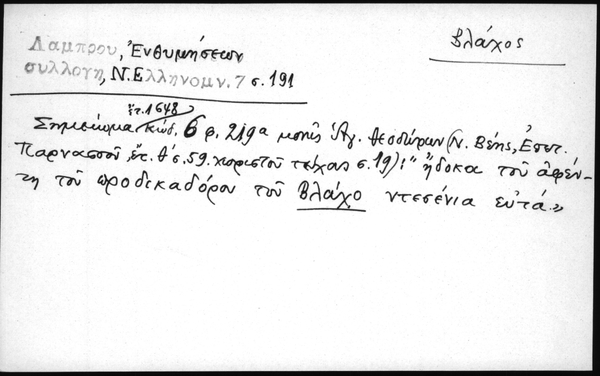 Βλάχος
Λάμπρου, Ἐνθυμήσεων
συλλογή, Ν.Ελληνομν. 7 σ. 191
ἔτ. 1648
Σημείωμα κώδ. 6 φ. 219α μονῆς Ἁγ. Θεοδώρων (Ν. Βέης, Ἐπετ.
Παρνασσοῦ, ἔτ. θ΄ σ. 59. χωριστοῦ τεύχους σ. 19): "ἤδοκα τοῦ ἀφέν-
τη τοῦ προδικαδόρου τοῦ Βλάχο ντεσένια εὐτά."